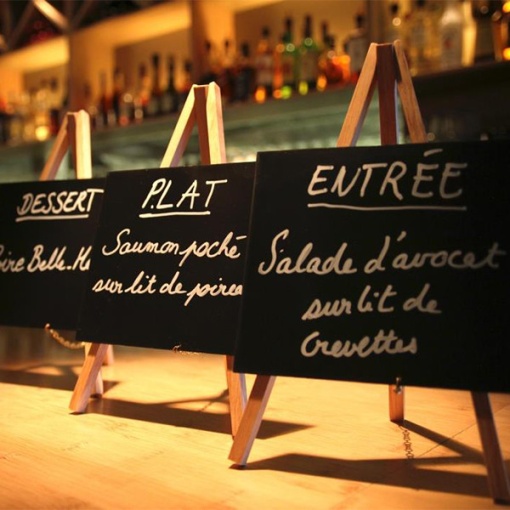 DESSERT
PLAT
Saumon poché
sur lit de
ENTRÉE
Salade d'avocat
sur lit de
Crevettes